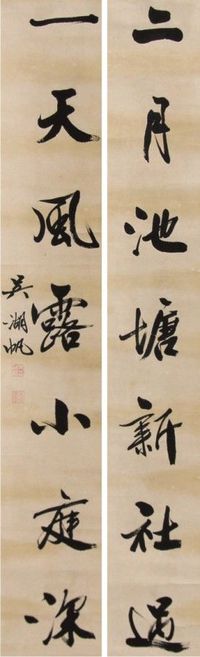 二月池塘新社過
一天風露小庭深
吳湖帆